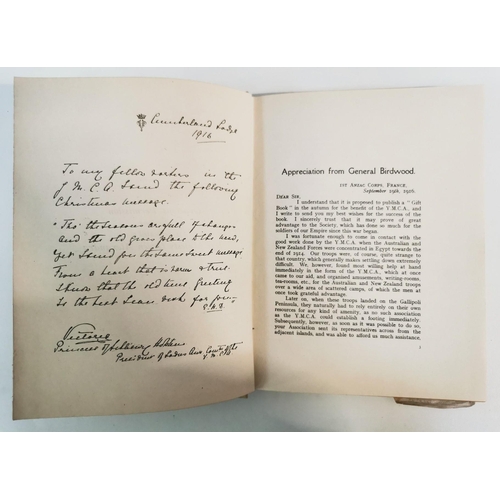 Cumberland Lodge
1916
To my fellow workers in the
Y.M.C.A. I send the following
Christmas message.
Tho' the seasons are full of change
and the old gives place to the new,
Yet I send you the same sweet message
From a heart that is warm & true.
I know that the old time greeting
Is the best I can
Victoria
Princess of
President of Ladies Aux. Y.M.C.A.
Appreciation from General Birdwood.
1ST ANZAC CORPS, FRANCE,
September 19th, 1916.
DEAR SIR,
I understand that it is proposed to publish a "Gift
Book" in the autumn for the benefit of the Y.M.C.A. and
I write to send you my best wishes for the success of the
book. I sincerely trust that it may prove of great
advantage to the Society, which has done so much for the
soldiers of our Empire since this war began.
I was fortunate enough to come in contact with the
good work done by the Y.M.C.A. when the Australian and
New Zealand Forces were concentrated in Egypt towards the
end of 1914. Our troops were, of course, quite strange to
that country, which generally makes settling down extremely
difficult. We, however, found most willing help at hand
immediately in the form of the Y.M.C.A., which at once
came to our aid, and organised amusements, writing-rooms,
tea-rooms, etc., for the Australian and New Zealand troops
over a wide area of scattered camps, of which the men at
once took grateful advantage.
Later on, when these troops landed on the Gallipoli
Peninsula, they naturally had to rely entirely on their own
resources for any kind of amenity, as no such association
as the Y.M.C.A. could establish a footing immediately.
Subsequently, however, as soon as it was possible to do so,
your Association sent its representatives across from the
adjacent islands, and was able to afford us much assistance,
1